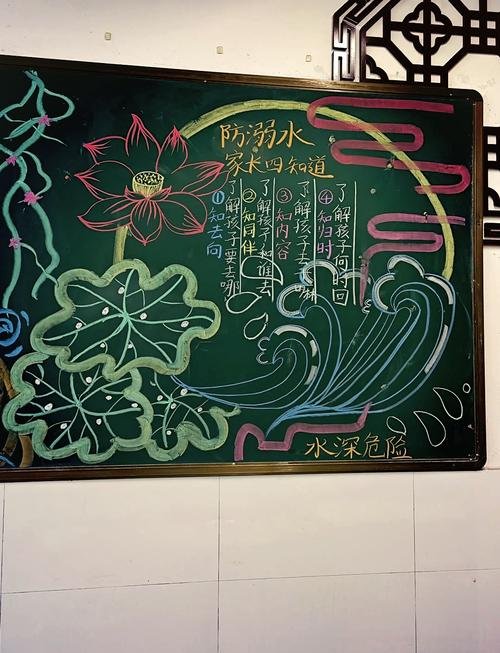 防溺水
家长四知道
①知去向
了解孩子要去哪
②知同伴
了解孩子和谁去
③知内容
了解孩子去干嘛
④知归时
了解孩子何时回
水深危险